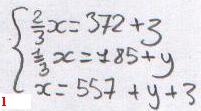 2/3 x = 372 + 3
1/3 x = 185 + y
x = 557 + y + 3
1